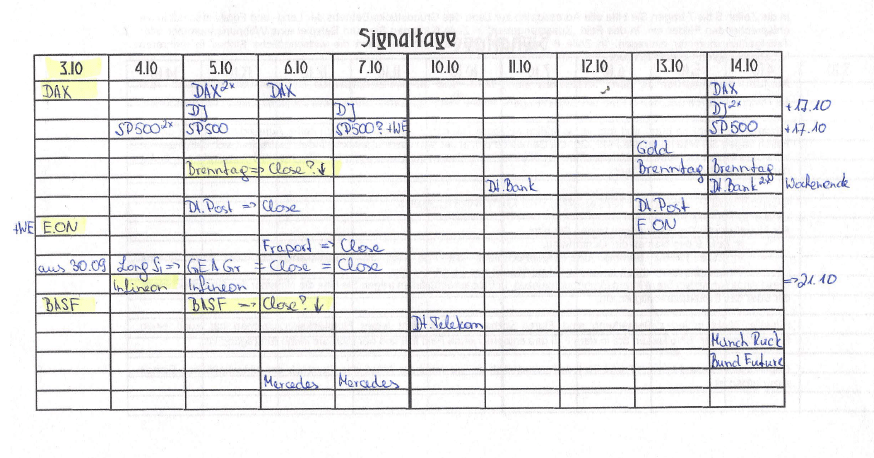 Signaltage
3.10 4.10 5.10 6.10 7.10 10.10 11.10 12.10 13.10 14.10
DAX DAX 2x DAX DAX
DJ DJ DJ 2x +17.10
SP500 2x SP500 SP500? +WE SP500 +17.10
Gold
Brenntag => Close? ↓ Brenntag Brenntag
Dt. Bank Dt. Bank 2x Wochenende
Dt. Post => Close Dt. Post
+WE E.ON E.ON
Fraport => Close
aus 30.09 Long Si => GEA Gr = Close = Close
Infineon Infineon => 21.10
BASF BASF => Close? ↓
Dt. Telekom
Münch Rück
Bund Future
Mercedes Mercedes